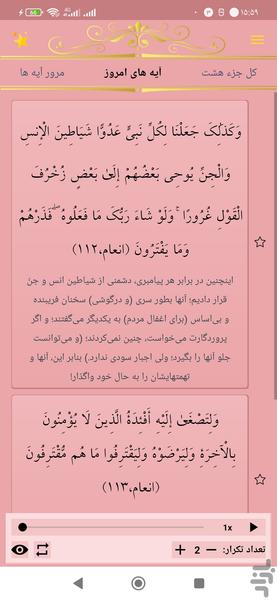 ۱۵:۵۹
66
کل جزء هشت
آیه های امروز
مرور آیه ها
وَكَذَٰلِكَ جَعَلْنَا لِكُلِّ نَبِيٍّ عَدُوًّا شَيَاطِينَ الْإِنسِ
وَالْجِنِّ يُوحِي بَعْضُهُمْ إِلَىٰ بَعْضٍ زُخْرُفَ
الْقَوْلِ غُرُورًا ۚ وَلَوْ شَاءَ رَبُّكَ مَا فَعَلُوهُ ۖ فَذَرْهُمْ
وَمَا يَفْتَرُونَ (انعام،۱۱۲)
اینچنین در برابر هر پیامبری، دشمنی از شیاطین انس و جنّ
قرار دادیم؛ آنها بطور سری (و درگوشی) سخنان فریبنده
و بی‌اساس (برای اغفال مردم) به یکدیگر می‌گفتند؛ و اگر
پروردگارت می‌خواست، چنین نمی‌کردند؛ (و می‌توانست
جلو آنها را بگیرد؛ ولی اجبار سودی ندارد.) بنابر این، آنها و
تهمتهایشان را به حال خود واگذار!
وَلِتَصْغَىٰ إِلَيْهِ أَفْئِدَةُ الَّذِينَ لَا يُؤْمِنُونَ
بِالْآخِرَةِ وَلِيَرْضَوْهُ وَلِيَقْتَرِفُوا مَا هُم مُّقْتَرِفُونَ
(انعام،۱۱۳)
1x
تعداد تکرار: − 2 +
بازار